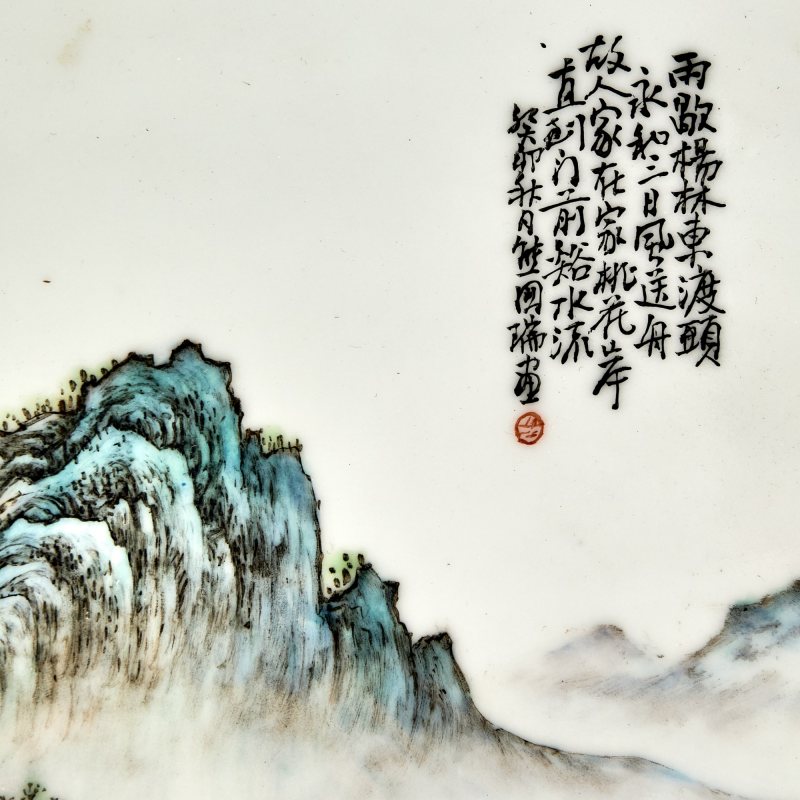 雨歇楊林東渡頭
永和三日風送舟
故人家在家桃花岸
直到门前谿水流
癸卯秋月熊國瑞画